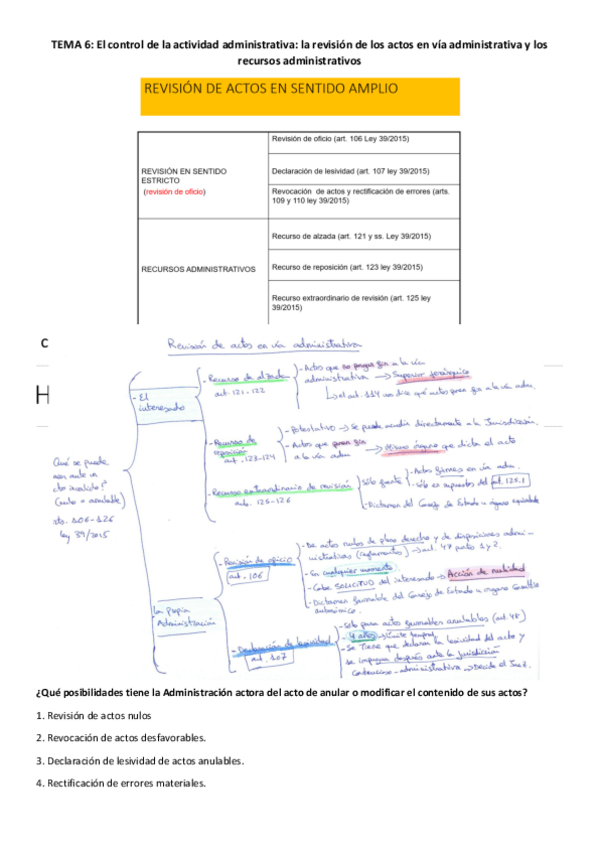 TEMA 6: El control de la actividad administrativa: la revisión de los actos en vía administrativa y los
recursos administrativos
REVISIÓN DE ACTOS EN SENTIDO AMPLIO
REVISIÓN EN SENTIDO
ESTRICTO
(revisión de oficio)
Revisión de oficio (art. 106 Ley 39/2015)
Declaración de lesividad (art. 107 ley 39/2015)
Revocación de actos y rectificación de errores (arts.
109 y 110 ley 39/2015)
RECURSOS ADMINISTRATIVOS
Recurso de alzada (art. 121 y ss. Ley 39/2015)
Recurso de reposición (art. 123 ley 39/2015)
Recurso extraordinario de revisión (art. 125 ley
39/2015)
C
H
Revisión de actos en vía administrativa
Qué se puede
ante un
acto inválido?
(nulo o anulable)
arts. 106-126
ley 39/2015
- El
interesado
- Recurso de alzada
art. 121-122
- Actos que no pongan fin a la vía
administrativa → Superior jerárquico
↳ el art. 114 nos dice qué actos ponen fin a la vía adm.
- Recurso de
reposición
art. 123-124
- Potestativo → Se puede acudir directamente a la Jurisdicción.
- Actos que ponen fin
a la vía admva → Mismo órgano que dicta el acto
- Recurso extraordinario de revisión
arts. 125-126
Sólo frente
- Actos firmes en vía adm.
- Sólo en supuestos del art. 125.1
- Dictamen del Consejo de Estado u órgano equivalente
La propia
Administración
- Revisión de oficio
art. 106
- De actos nulos de pleno derecho y de disposiciones admi-
nistrativas (reglamentos) → art. 47 puntos 1 y 2.
- En cualquier momento
- Cabe SOLICITUD del interesado → Acción de nulidad
- Dictamen favorable del Consejo de Estado u órgano Consultivo
autonómico.
- Declaración de lesividad
art. 107
- Sólo para actos favorables anulables (art. 48)
- 4 años → límite temporal
- Se tiene que declarar la lesividad del acto y
se impugna después ante la jurisdicción
contencioso-administrativa → Decide el Juez.
¿Qué posibilidades tiene la Administración actora del acto de anular o modificar el contenido de sus actos?
1. Revisión de actos nulos
2. Revocación de actos desfavorables.
3. Declaración de lesividad de actos anulables.
4. Rectificación de errores materiales.